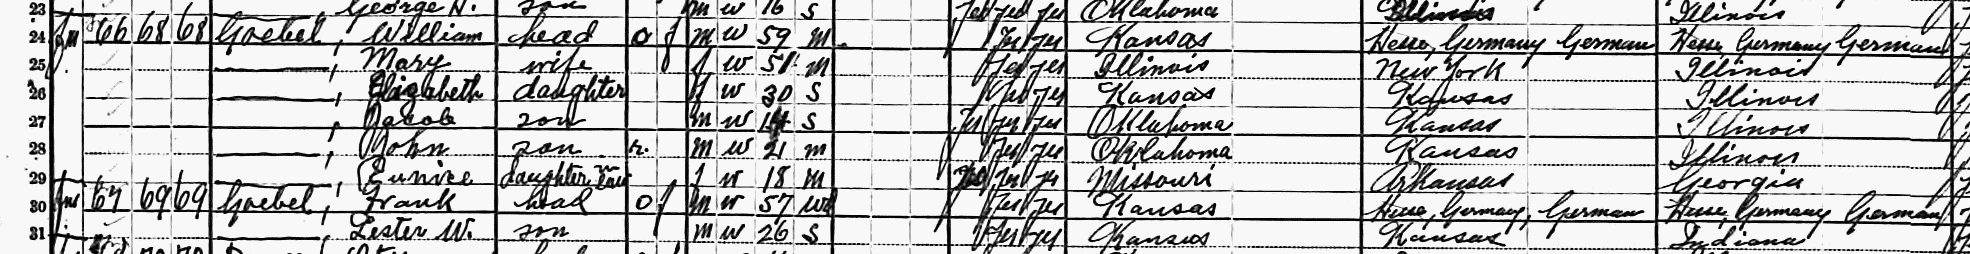 23 George H. son m w 16 S yes yes yes Oklahoma Illinois Illinois
24 fm 66 68 68 Goebel, William head O f m w 59 m yes yes Kansas Hesse, Germany German Hesse, Germany German
25 ———, Mary wife f w 51 m yes yes Illinois New York Illinois
26 ———, Elizabeth daughter f w 30 S yes yes Kansas Kansas Illinois
27 ———, Jacob son m w 14 S yes yes yes Oklahoma Kansas Illinois
28 ———, John son r. m w 21 m yes yes Oklahoma Kansas Illinois
29 ———, Eunice daughter in law f w 18 m yes yes Missouri Arkansas Georgia
30 67 69 69 Goebel, Frank head O f m w 57 wd yes yes Kansas Hesse, Germany, German Hesse, Germany German
31 ———, Lester W. son m w 26 S yes yes Kansas Kansas Indiana